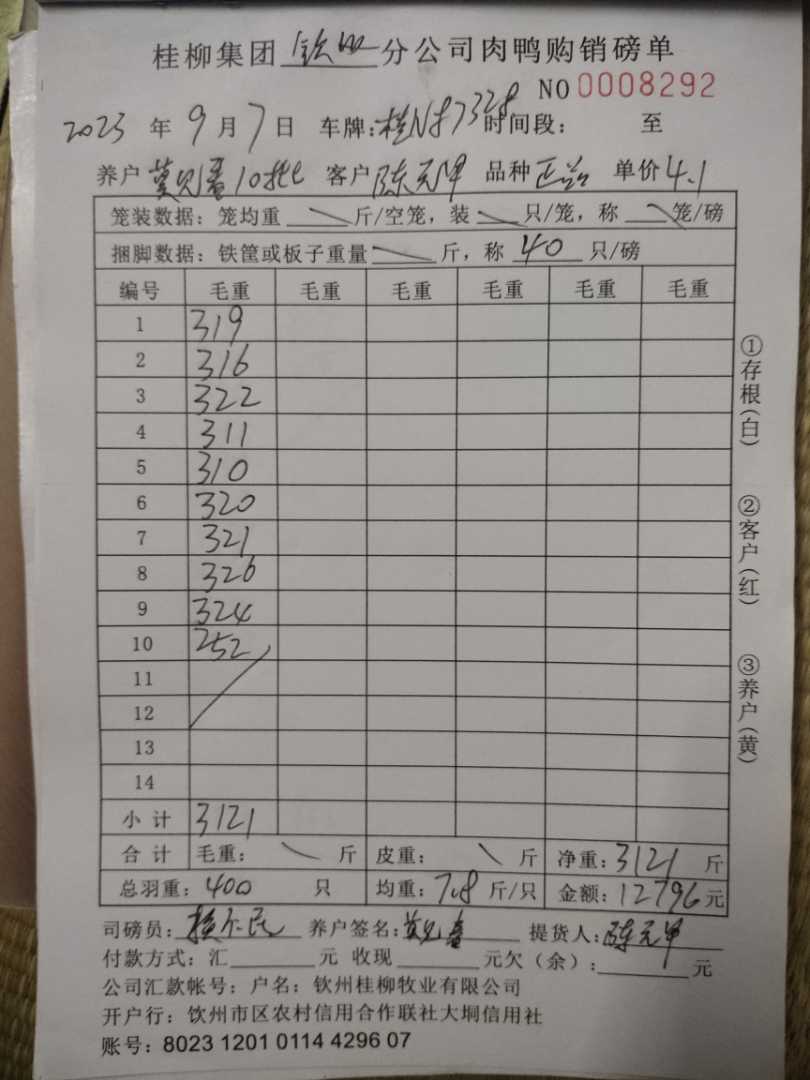 桂柳集团 钦州 分公司肉鸭购销磅单
NO 0008292
2023 年 9 月 7 日 车牌:桂N87328 时间段: 至
养户 莫见番10批 客户 陈元甲 品种 正品 单价 4.1
笼装数据:笼均重 斤/空笼,装 只/笼,称 笼/磅
捆脚数据:铁筐或板子重量 斤,称 40 只/磅
编号 毛重 毛重 毛重 毛重 毛重 毛重
1 319
2 316
3 322
4 311
5 310
6 320
7 321
8 326
9 324
10 252
11
12
13
14
小计 3121
合计 毛重: 斤 皮重: 斤 净重:3121 斤
总羽重:400 只 均重:7.8 斤/只 金额:12796 元
司磅员: 养户签名: 提货人:陈元甲
付款方式:汇 元 收现 元欠(余): 元
公司汇款帐号:户名:钦州桂柳牧业有限公司
开户行:钦州市区农村信用合作联社大垌信用社
账号:8023 1201 0114 4296 07
①存根(白)
②客户(红)
③养户(黄)